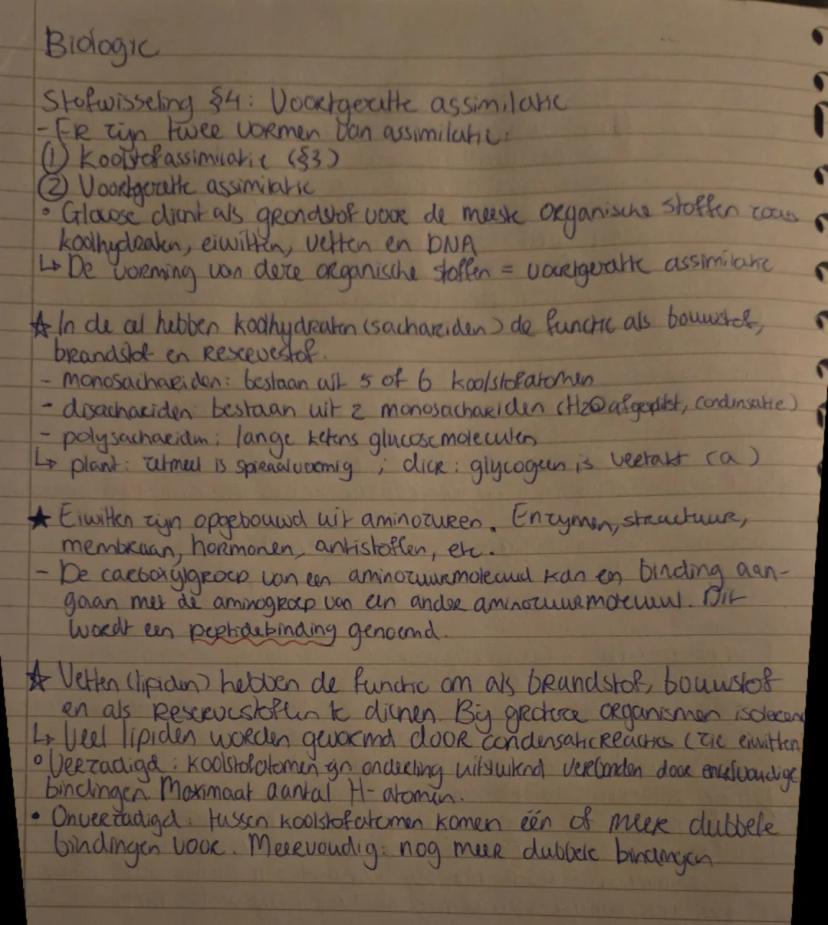 Biologie
Stofwisseling §4: Voortgezette assimilatie
- Er zijn twee vormen van assimilatie:
① Koolstofassimilatie (§3)
② Voortgezette assimilatie
• Glucose dient als grondstof voor de meeste organische stoffen zoals
koolhydraten, eiwitten, vetten en DNA
↳ De vorming van deze organische stoffen = voortgezette assimilatie
☆ In de cel hebben koolhydraten (sachariden) de functie als bouwstof,
brandstof en reservestof.
- monosachariden: bestaan uit 5 of 6 koolstofatomen
- disachariden: bestaan uit 2 monosachariden (H2O afgesplitst, condensatie)
- polysachariden: lange ketens glucosemoleculen
↳ plant: zetmeel is spiraalvormig ; dier: glycogeen is vertakt (a)
★ Eiwitten zijn opgebouwd uit aminozuren. Enzymen, structuur,
membraan, hormonen, antistoffen, etc.
- De carboxylgroep van een aminozuurmolecuul kan een binding aan-
gaan met de aminogroep van een ander aminozuurmolecuul. Dit
wordt een peptidebinding genoemd.
☆ Vetten (lipiden) hebben de functie om als brandstof, bouwstof
en als reservestoffen te dienen. Bij grotere organismen isoleren
↳ Veel lipiden worden gevormd door condensatiereacties (zie eiwitten
° Verzadigd: koolstofatomen zijn onderling uitsluitend verbonden door enkelvoudige
bindingen. Maximaal aantal H-atomen.
• Onverzadigd: tussen koolstofatomen komen één of meer dubbele
bindingen voor. Meervoudig: nog meer dubbele bindingen